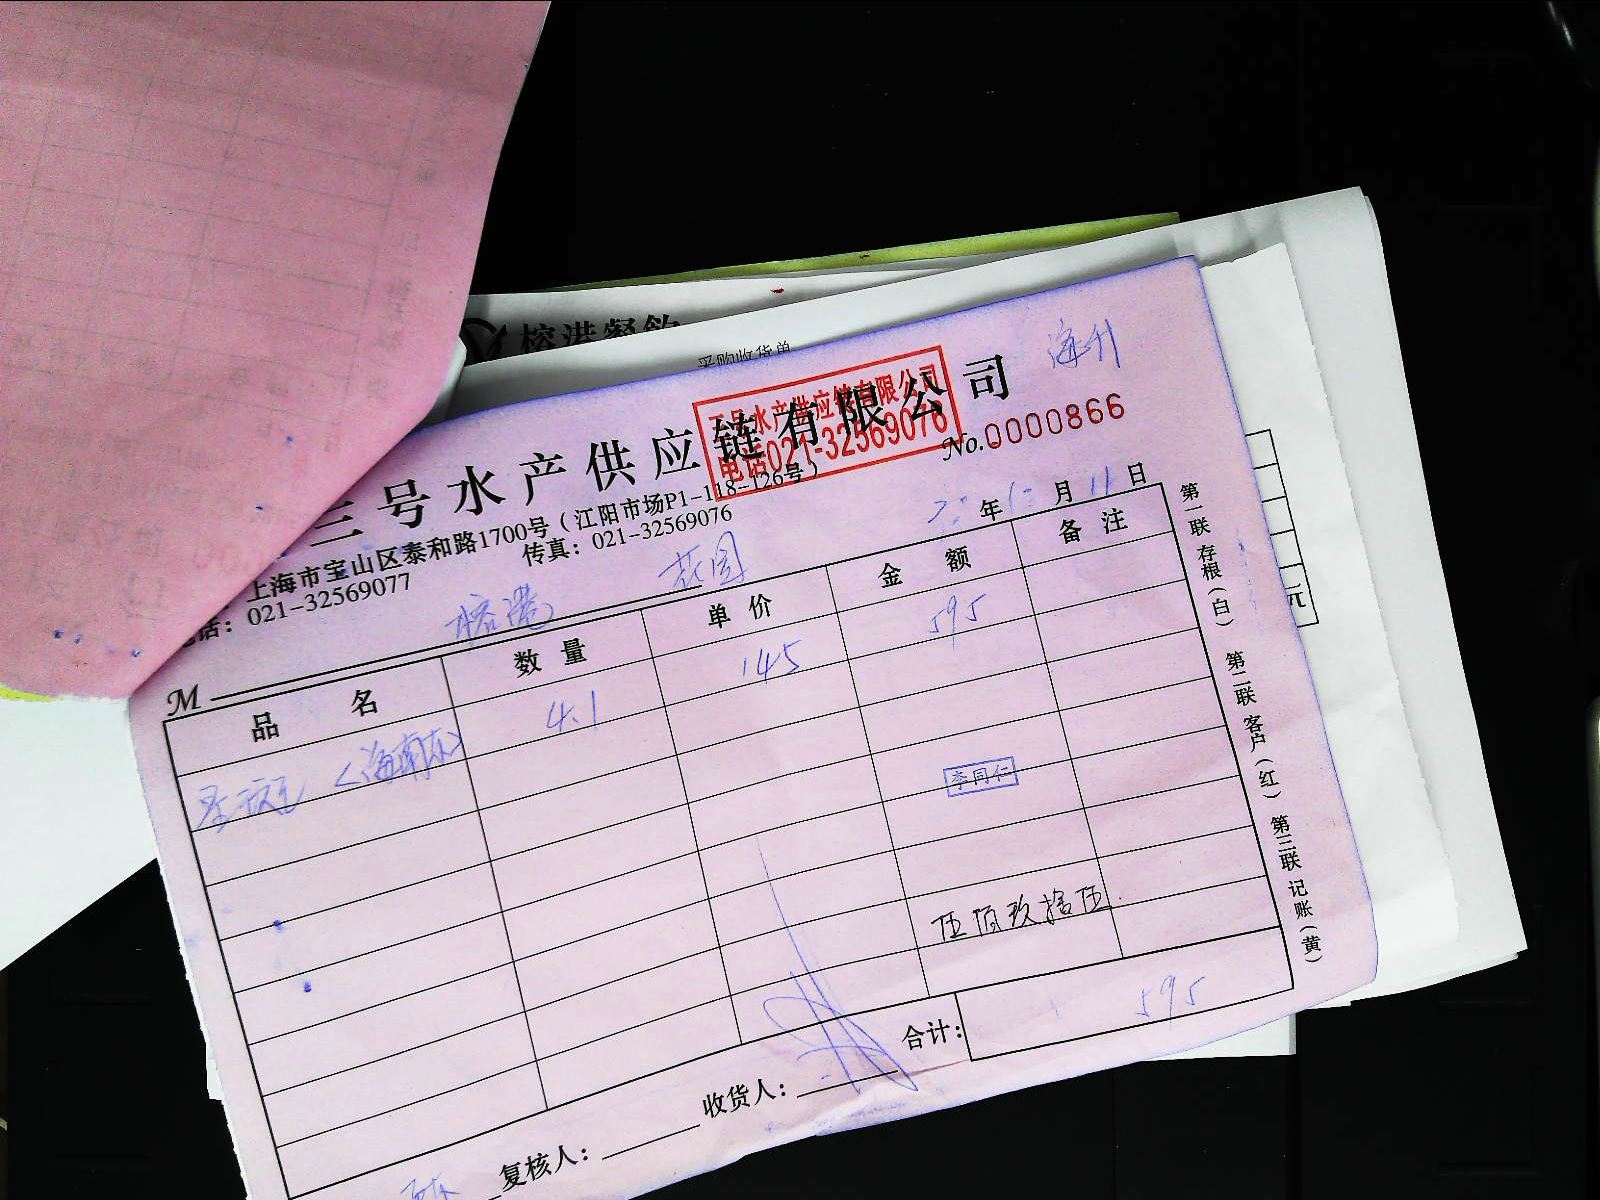 榕港餐饮
采购收货单
海升
三号水产供应链有限公司
三号水产供应链有限公司
电话021-32569076
No.0000866
上海市宝山区泰和路1700号（江阳市场P1-118-126号）
电话：021-32569077
传真：021-32569076
年 月 11 日
M 榕港 花园
品 名 数 量 单 价 金 额 备 注
（海南东） 4.1 145 595
李同仁
伍佰玖拾伍
合计： 595
收货人：
复核人：
第一联 存根（白） 第二联 客户（红） 第三联 记账（黄）
元